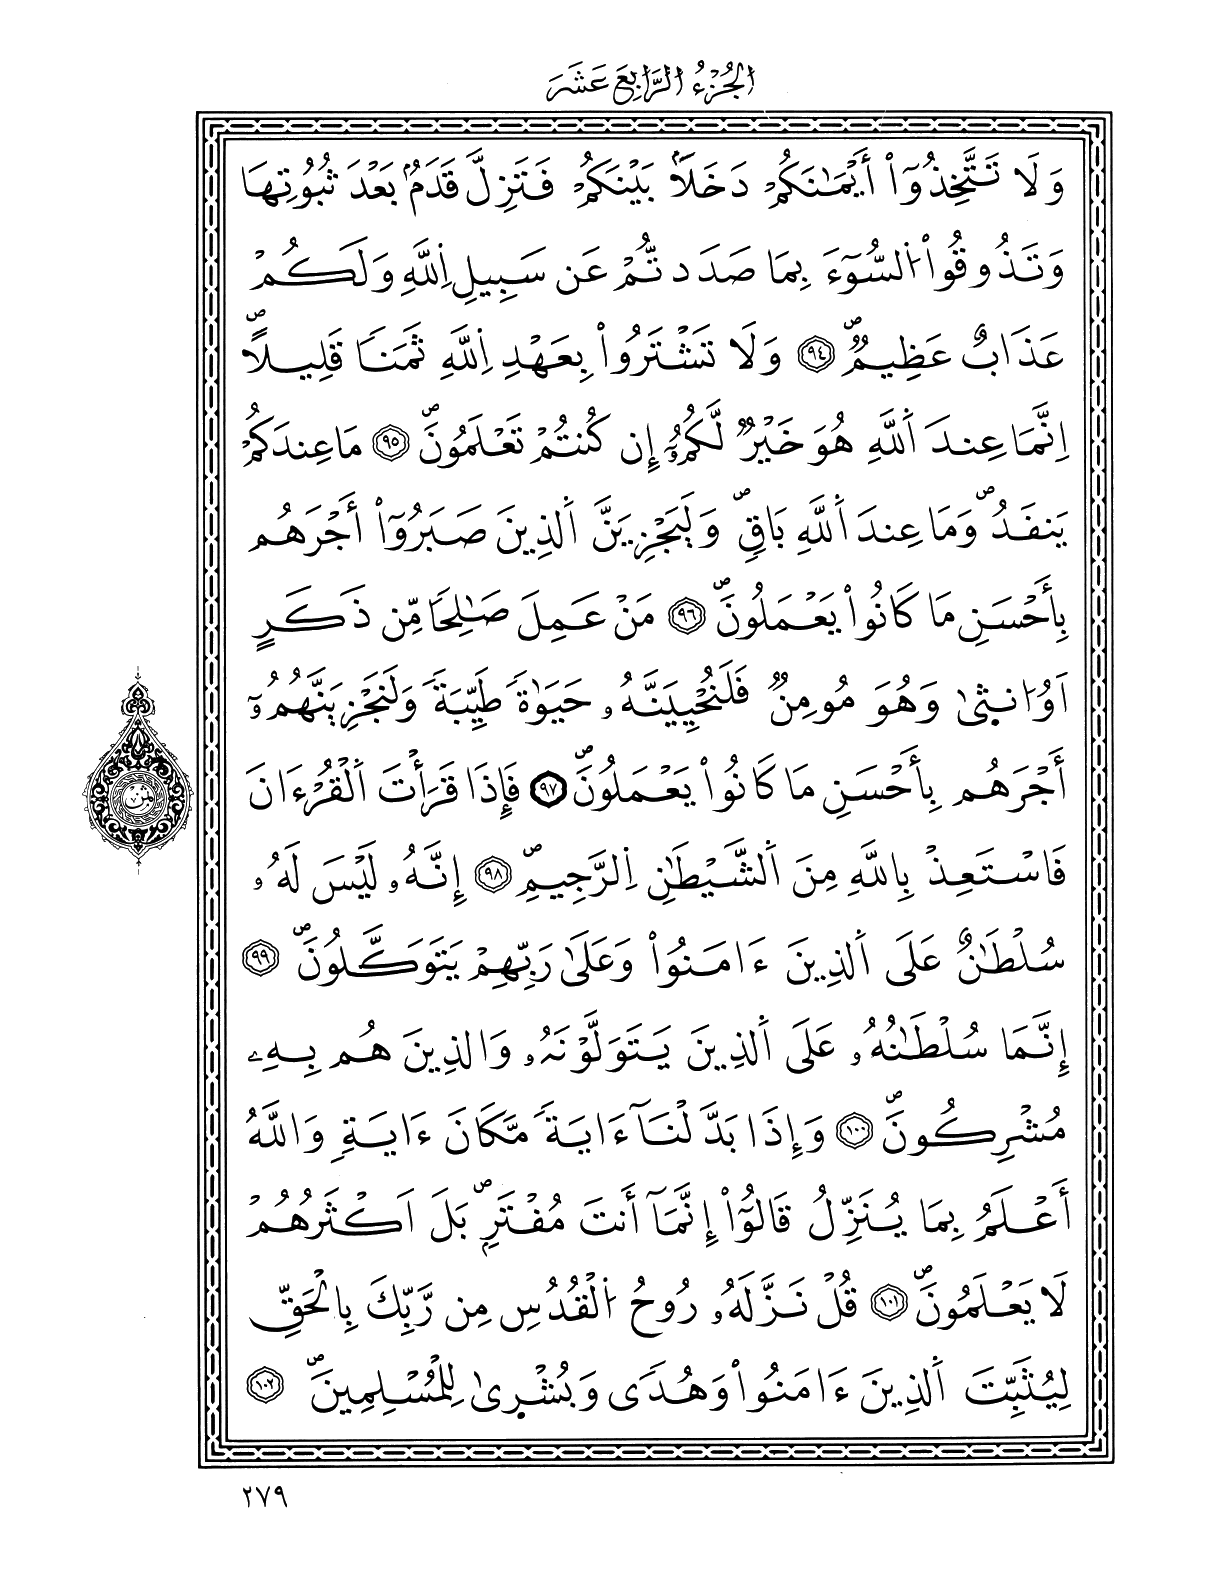 الجُزْءُ الرَّابِعَ عَشَرَ
وَلَا تَتَّخِذُوٓاْ أَيْمَٰنَكُمْ دَخَلاَۢ بَيْنَكُمْ فَتَزِلَّ قَدَمُۢ بَعْدَ ثُبُوتِهَا
وَتَذُوقُواْ اُ۬لسُّوٓءَ بِمَا صَدَدتُّمْ عَن سَبِيلِ اِ۬للَّهِ وَلَكُمْ
عَذَابٌ عَظِيمٞۖ ٩٤ وَلَا تَشْتَرُواْ بِعَهْدِ اِ۬للَّهِ ثَمَناٗ قَلِيلاًۖ
اِنَّمَا عِندَ اَ۬للَّهِ هُوَ خَيْرٞ لَّكُمُۥٓ إِن كُنتُمْ تَعْلَمُونَۖ ٩٥ مَا عِندَكُمْ
يَنفَدُۖ وَمَا عِندَ اَ۬للَّهِ بَاقٖۖ وَلَيَجْزِيَنَّ اَ۬لذِينَ صَبَرُوٓاْ أَجْرَهُم
بِأَحْسَنِ مَا كَانُواْ يَعْمَلُونَۖ ٩٦ مَنْ عَمِلَ صَٰلِحاٗ مِّن ذَكَرٍ
اَوُ ا۟نث۪يٰ وَهُوَ مُومِنٞ فَلَنُحْيِيَنَّهُۥ حَيَوٰةٗ طَيِّبَةٗ وَلَنَجْزِيَنَّهُمُۥٓ
أَجْرَهُم بِأَحْسَنِ مَا كَانُواْ يَعْمَلُونَۖ ٩٧ فَإِذَا قَرَأْتَ اَ۬لْقُرْءَانَ
فَاسْتَعِذْ بِاللَّهِ مِنَ اَ۬لشَّيْطَٰنِ اِ۬لرَّجِيمِۖ ٩٨ إِنَّهُۥ لَيْسَ لَهُۥ
سُلْطَٰنٌ عَلَى اَ۬لذِينَ ءَامَنُواْ وَعَلَىٰ رَبِّهِمْ يَتَوَكَّلُونَۖ ٩٩
إِنَّمَا سُلْطَٰنُهُۥ عَلَى اَ۬لذِينَ يَتَوَلَّوْنَهُۥ وَالذِينَ هُم بِهِۦ
مُشْرِكُونَۖ ١٠٠ وَإِذَا بَدَّلْنَآ ءَايَةٗ مَّكَانَ ءَايَةٖ وَاللَّهُ
أَعْلَمُ بِمَا يُنَزِّلُ قَالُوٓاْ إِنَّمَآ أَنتَ مُفْتَرِۢۖ بَلَ اَكْثَرُهُمْ
لَا يَعْلَمُونَۖ ١٠١ قُلْ نَزَّلَهُۥ رُوحُ اُ۬لْقُدُسِ مِن رَّبِّكَ بِالْحَقِّ
لِيُثَبِّتَ اَ۬لذِينَ ءَامَنُواْ وَهُدىٗ وَبُشْر۪يٰ لِلْمُسْلِمِينَۖ ١٠٢
ثمن
٢٧٩